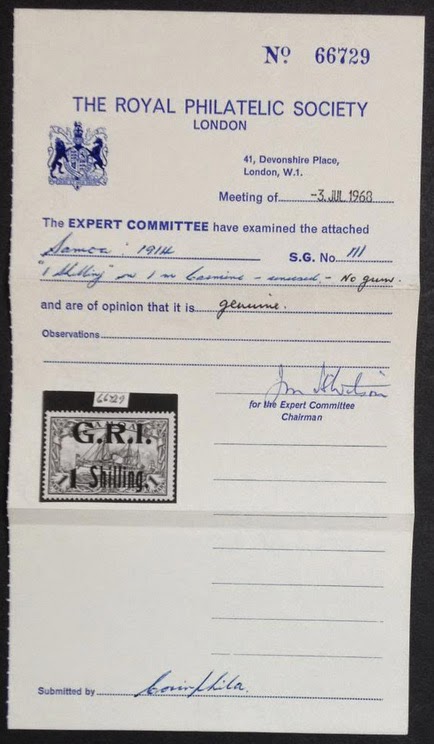 No 66729
THE ROYAL PHILATELIC SOCIETY
LONDON
41, Devonshire Place,
London, W.1.
Meeting of -3. JUL 1968
The EXPERT COMMITTEE have examined the attached
Samoa: 1914 S.G. No. 111
"1 Shilling" on 1 m Carmine - unused. - No gum.
and are of opinion that it is genuine.
Observations
for the Expert Committee
Chairman
66729
G.R.I.
1 Shilling.
Submitted by Corinphila.